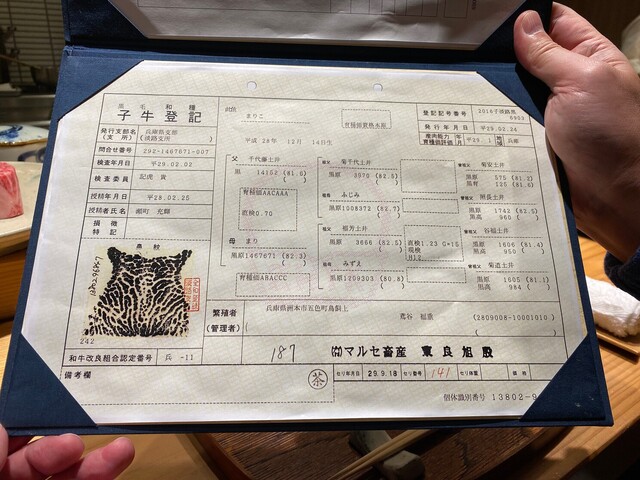 黒毛和種
子牛登記
発行支部名（支所） 兵庫県支部（淡路支所）
問合せ番号 292-1467671-007
検査年月日 平29.02.02
検査委員 記虎 貴
授精年月日 平28.02.25
授精者氏名 瀬町 克輝
損徴特記
此他 まりこ
育種価資格本原
平成 28年 12月 14日生
登記記号番号 2016子淡路黒 6953
発行年月日 平29.02.24
父 千代藤土井
黒 14152 (81.0)
育種価AACAAA
直検0.70
母 まり
黒原1467671 (82.3)
育種価ABACCC
菊千代土井
ふじみ
黒原1008372 (82.7)
稲芳土井
黒原 3666 (82.5)
直検1.23
みずえ
黒原1209303 (80.8)
菊安土井
黒原 575 (81.2)
黒育 125 (81.6)
照長土井
黒原 1742 (82.5)
黒高 960
谷福土井
黒原 1606 (81.4)
黒高 950
菊道土井
黒原 1605 (81.1)
黒高 984
鼻紋
242
和牛改良組合認定番号 兵 -11
備考欄
繁殖者（管理者） 兵庫県洲本市五色町鳥飼上
(2809008-10001010)
187 ㈲マルセ畜産
セリ年月日 29.9.18 セリ番号 141 セリ体重 価格
個体識別番号 13802-9